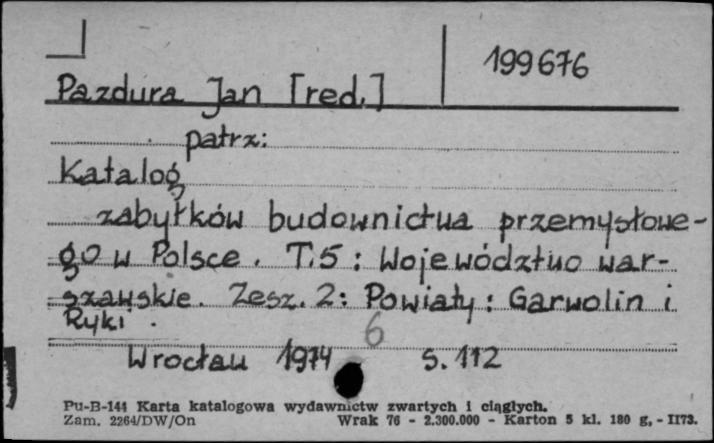 199676
Pazdura Jan [red.]
patrz:
Katalog
zabytków budownictwa przemysłowe-
go w Polsce. T.5: Województwo war-
szawskie. Zesz. 2: Powiaty: Garwolin i
Ryki.
6
Wrocław 1974 S. 112
Pu-B-144 Karta katalogowa wydawnictw zwartych i ciągłych.
Zam. 2264/DW/On Wrak 76 - 2.300.000 - Karton 5 kl. 180 g, - II73.